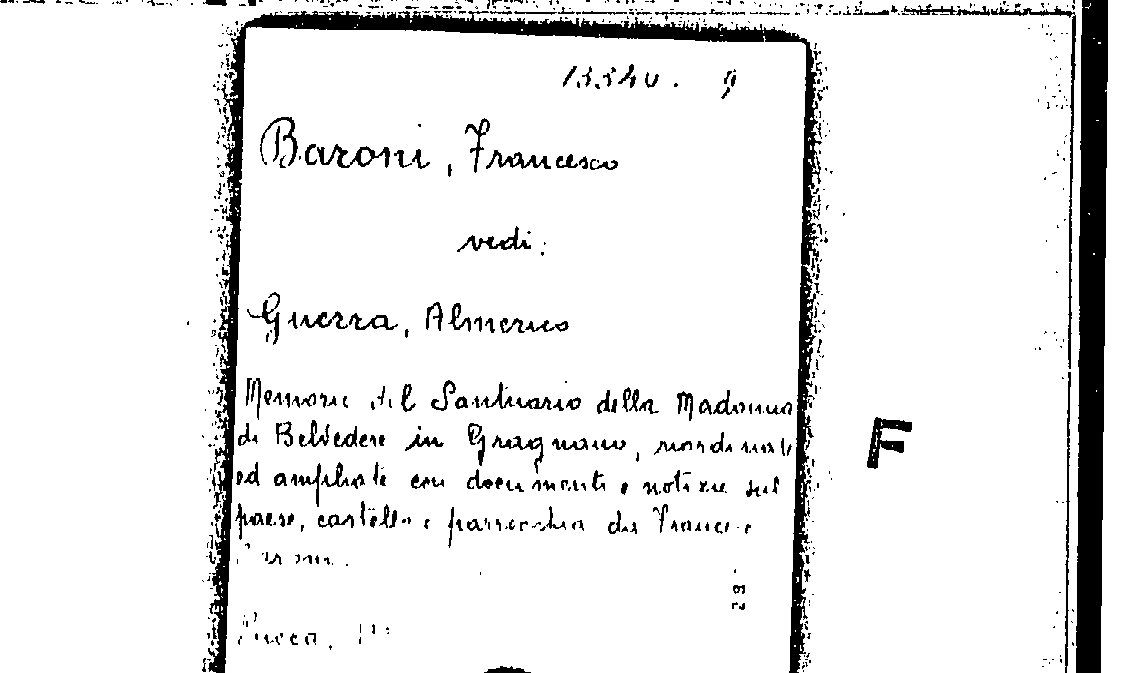 13540. 9
Baroni, Francesco
vedi:
Guerra, Almerico
Memorie del Santuario della Madonna
di Belvedere in Gragnano, riordinate
ed ampliate con documenti e notizie sul
paese, castello e parrocchia da Francesco
Baroni.
Lucca,
F